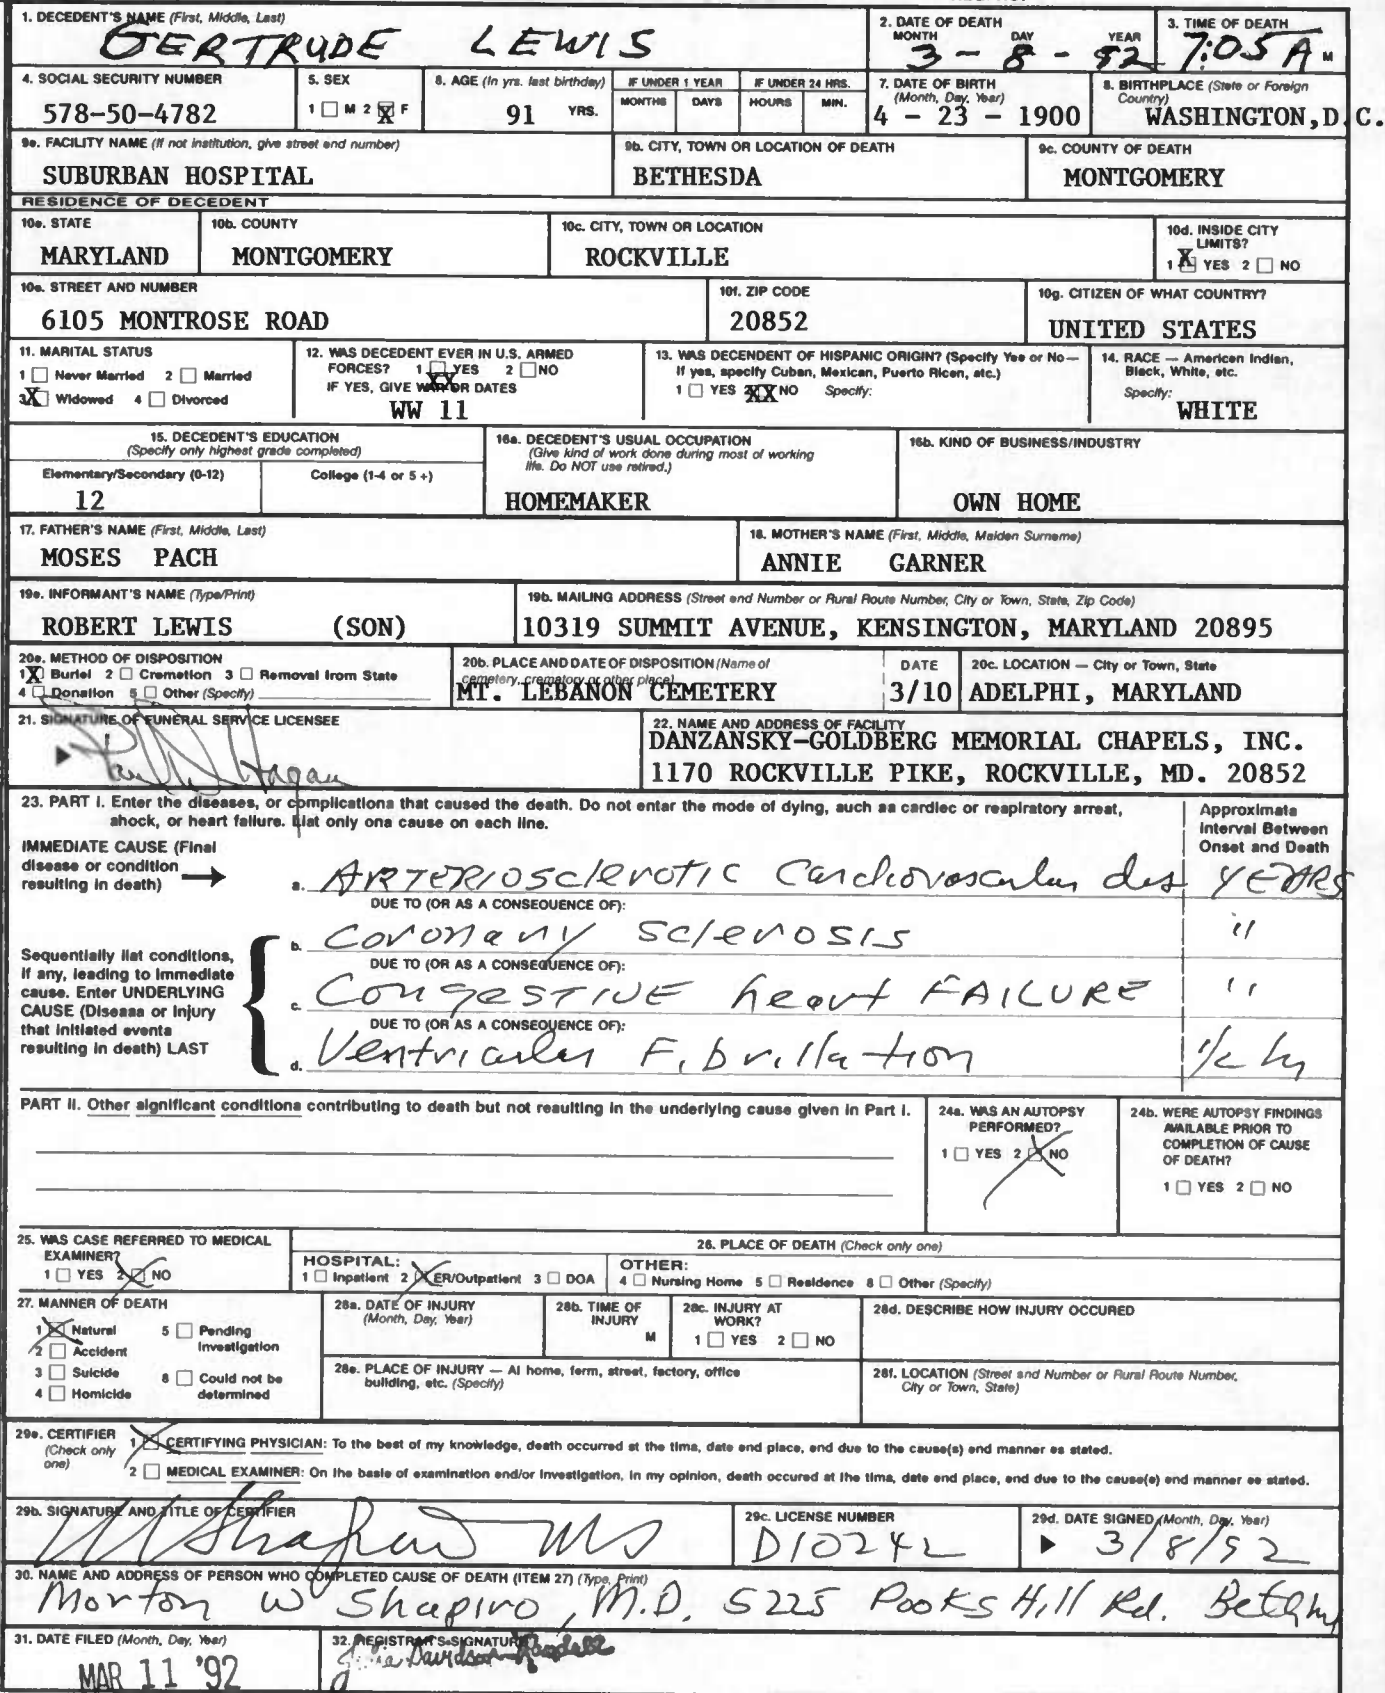 1. DECEDENT'S NAME (First, Middle, Last)
GERTRUDE LEWIS
2. DATE OF DEATH
MONTH DAY YEAR
3 - 8 - 92
3. TIME OF DEATH
7:05 A M
4. SOCIAL SECURITY NUMBER
578-50-4782
5. SEX
1 M 2 X F
6. AGE (In yrs. last birthday)
91 YRS.
IF UNDER 1 YEAR
MONTHS DAYS
IF UNDER 24 HRS.
HOURS MIN.
7. DATE OF BIRTH
(Month, Day, Year)
4 - 23 - 1900
8. BIRTHPLACE (State or Foreign
Country)
WASHINGTON,D.C.
9a. FACILITY NAME (If not institution, give street and number)
SUBURBAN HOSPITAL
9b. CITY, TOWN OR LOCATION OF DEATH
BETHESDA
9c. COUNTY OF DEATH
MONTGOMERY
RESIDENCE OF DECEDENT
10a. STATE
MARYLAND
10b. COUNTY
MONTGOMERY
10c. CITY, TOWN OR LOCATION
ROCKVILLE
10d. INSIDE CITY
LIMITS?
1 X YES 2 NO
10e. STREET AND NUMBER
6105 MONTROSE ROAD
10f. ZIP CODE
20852
10g. CITIZEN OF WHAT COUNTRY?
UNITED STATES
11. MARITAL STATUS
1 Never Married 2 Married
3 X Widowed 4 Divorced
12. WAS DECEDENT EVER IN U.S. ARMED
FORCES? 1 YES 2 NO
XX
IF YES, GIVE WAR OR DATES
WW 11
13. WAS DECENDENT OF HISPANIC ORIGIN? (Specify Yes or No—
If yes, specify Cuban, Mexican, Puerto Rican, etc.)
1 YES XX NO Specify:
14. RACE — American Indian,
Black, White, etc.
Specify:
WHITE
15. DECEDENT'S EDUCATION
(Specify only highest grade completed)
Elementary/Secondary (0-12) College (1-4 or 5 +)
12
16a. DECEDENT'S USUAL OCCUPATION
(Give kind of work done during most of working
life. Do NOT use retired.)
HOMEMAKER
16b. KIND OF BUSINESS/INDUSTRY
OWN HOME
17. FATHER'S NAME (First, Middle, Last)
MOSES PACH
18. MOTHER'S NAME (First, Middle, Maiden Surname)
ANNIE GARNER
19a. INFORMANT'S NAME (Type/Print)
ROBERT LEWIS (SON)
19b. MAILING ADDRESS (Street and Number or Rural Route Number, City or Town, State, Zip Code)
10319 SUMMIT AVENUE, KENSINGTON, MARYLAND 20895
20a. METHOD OF DISPOSITION
1 X Burial 2 Cremation 3 Removal from State
4 Donation 5 Other (Specify)
20b. PLACE AND DATE OF DISPOSITION (Name of
cemetery, crematory or other place)
MT. LEBANON CEMETERY
DATE
3/10
20c. LOCATION — City or Town, State
ADELPHI, MARYLAND
21. SIGNATURE OF FUNERAL SERVICE LICENSEE
Hagan
22. NAME AND ADDRESS OF FACILITY
DANZANSKY-GOLDBERG MEMORIAL CHAPELS, INC.
1170 ROCKVILLE PIKE, ROCKVILLE, MD. 20852
23. PART I. Enter the diseases, or complications that caused the death. Do not enter the mode of dying, such as cardiac or respiratory arrest,
shock, or heart failure. List only one cause on each line.
Approximate
Interval Between
Onset and Death
IMMEDIATE CAUSE (Final
disease or condition
resulting in death)
a. ARTERIOSclerotic Cardiovascular dis YEARS
DUE TO (OR AS A CONSEQUENCE OF):
b. Coronary sclerosis "
Sequentially list conditions,
if any, leading to immediate
cause. Enter UNDERLYING
CAUSE (Disease or injury
that initiated events
resulting in death) LAST
DUE TO (OR AS A CONSEQUENCE OF):
c. CongesTIVE heart FAILURE "
DUE TO (OR AS A CONSEQUENCE OF):
d. Ventricular Fibrillation 1/2 hr
PART II. Other significant conditions contributing to death but not resulting in the underlying cause given in Part I.
24a. WAS AN AUTOPSY
PERFORMED?
1 YES 2 X NO
24b. WERE AUTOPSY FINDINGS
AVAILABLE PRIOR TO
COMPLETION OF CAUSE
OF DEATH?
1 YES 2 NO
25. WAS CASE REFERRED TO MEDICAL
EXAMINER?
1 YES 2 X NO
26. PLACE OF DEATH (Check only one)
HOSPITAL:
1 Inpatient 2 X ER/Outpatient 3 DOA
OTHER:
4 Nursing Home 5 Residence 6 Other (Specify)
27. MANNER OF DEATH
1 X Natural 5 Pending
Investigation
2 Accident
3 Suicide 6 Could not be
determined
4 Homicide
28a. DATE OF INJURY
(Month, Day, Year)
28b. TIME OF
INJURY
M
28c. INJURY AT
WORK?
1 YES 2 NO
28d. DESCRIBE HOW INJURY OCCURED
28e. PLACE OF INJURY — At home, farm, street, factory, office
building, etc. (Specify)
28f. LOCATION (Street and Number or Rural Route Number,
City or Town, State)
29a. CERTIFIER
(Check only
one)
1 X CERTIFYING PHYSICIAN: To the best of my knowledge, death occurred at the time, date and place, and due to the cause(s) and manner as stated.
2 MEDICAL EXAMINER: On the basis of examination and/or investigation, in my opinion, death occured at the time, date and place, and due to the cause(s) and manner as stated.
29b. SIGNATURE AND TITLE OF CERTIFIER
M Shapiro MD
29c. LICENSE NUMBER
D10242
29d. DATE SIGNED (Month, Day, Year)
3/8/92
30. NAME AND ADDRESS OF PERSON WHO COMPLETED CAUSE OF DEATH (ITEM 27) (Type, Print)
Morton W Shapiro, M.D. 5225 Pooks Hill Rd.
31. DATE FILED (Month, Day, Year)
MAR 11 '92
32. REGISTRAR'S SIGNATURE
Julia Davidson-Randall